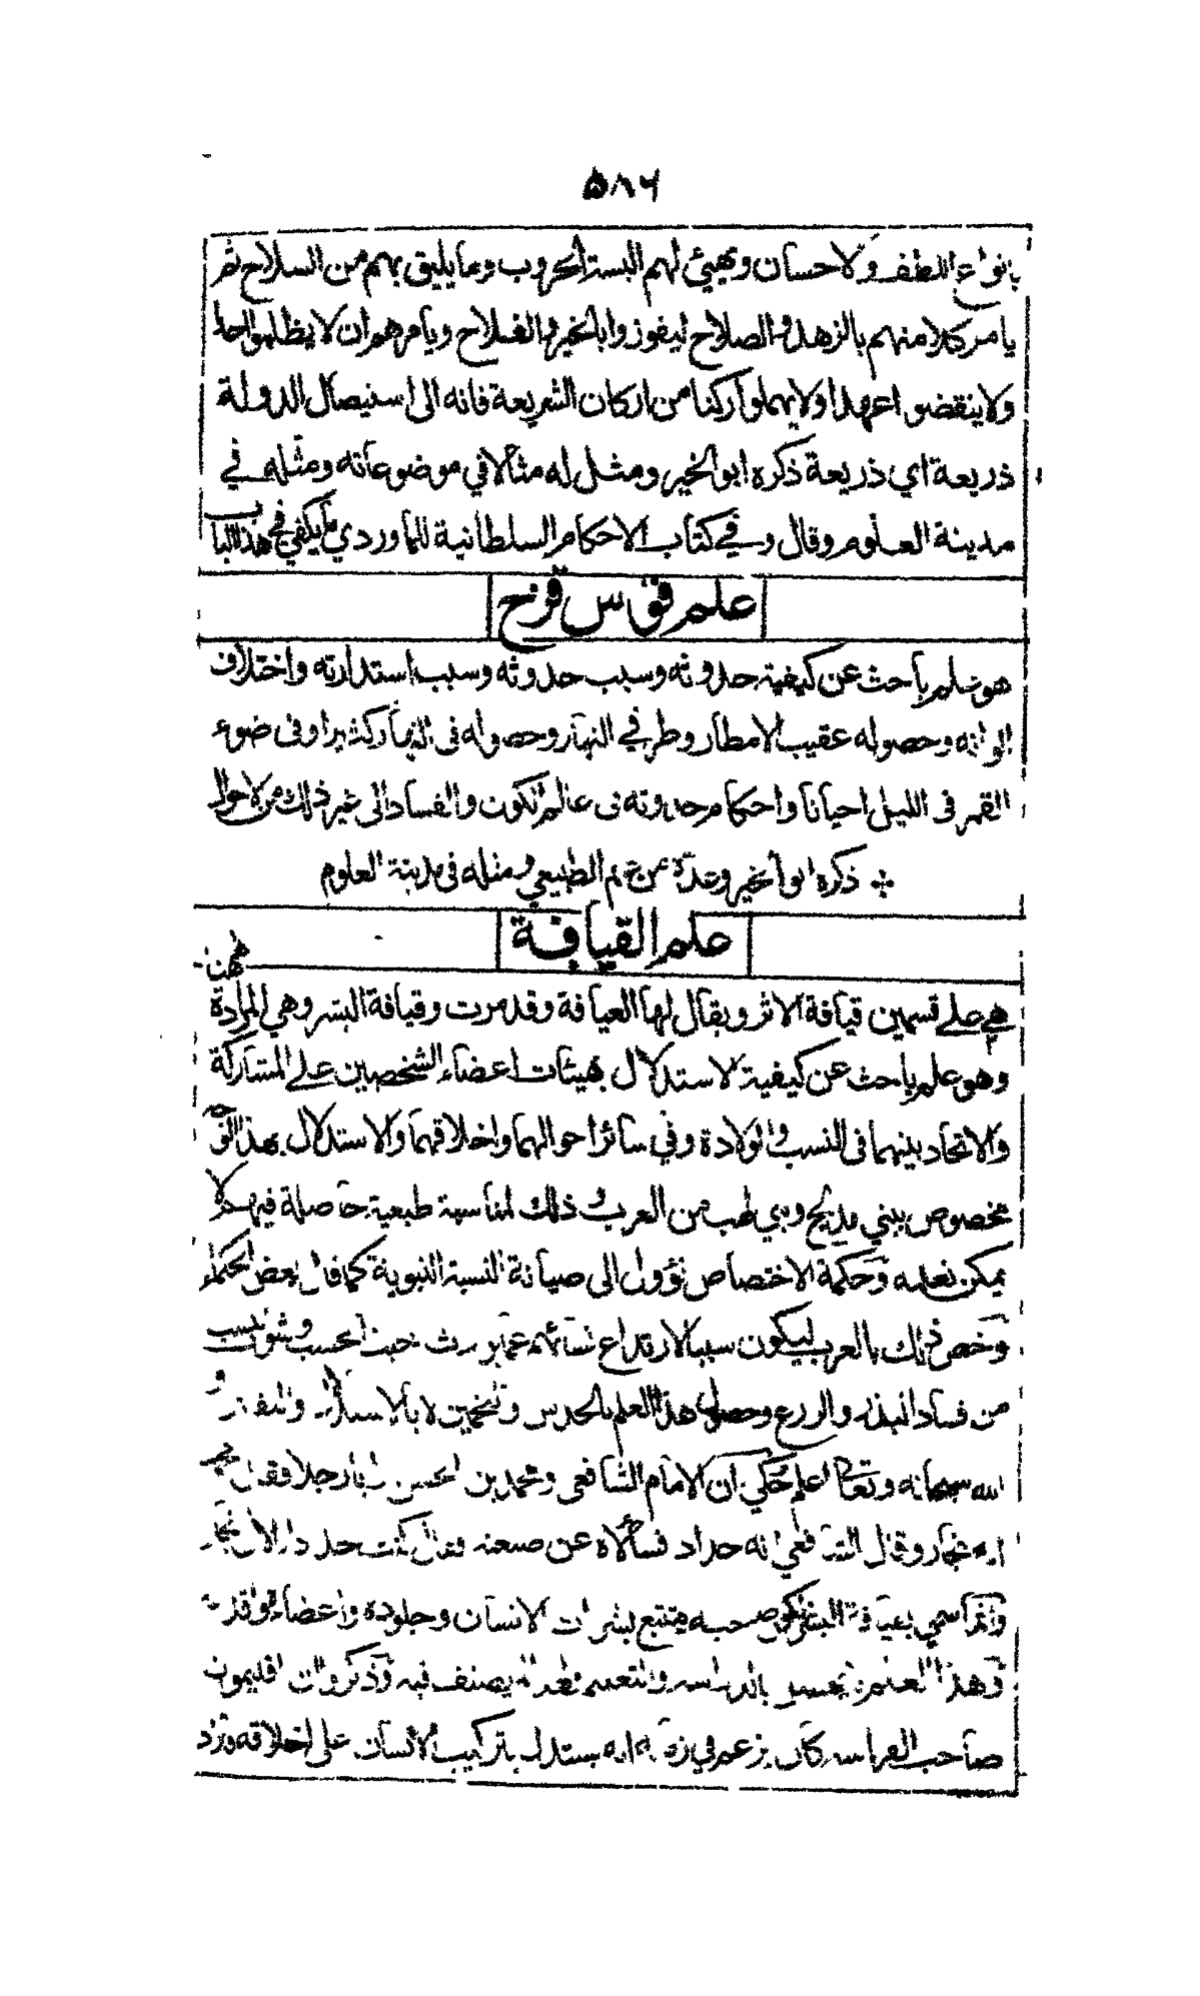 ۵۸۶
بانواع اللطف والاحسان ويهيئ لهم البسة الحروب وما يليق بهم من السلاح ثم
يامر كلا منهم بالزهد والصلاح ليفوزوا بالخير والفلاح ويامرهم ان لا يظلموا احدا
ولا ينقضوا عهدا ولا يهملوا ركنا من اركان الشريعة فانه الى استيصال الدولة
ذريعة اي ذريعة ذكره ابو الخير ومثل له مثالا في موضوعاته ومثله في
مدينة العلوم وقال وفي كتاب الاحكام السلطانية للماوردي ما يكفي في هذا الباب
علم قوس قزح
هو علم باحث عن كيفية حدوثه وسبب حدوثه وسبب استدارته واختلاف
الوانه وحصوله عقيب الامطار وطرفي النهار وحصوله في النهار كثيرا وفي ضوء
القمر في الليل احيانا واحكام حدوثه في عالم الكون والفساد الى غير ذلك من الاحوال
ذكره ابو الخير وعده من علم الطبيعي ومثله في مدينة العلوم
علم القيافة
هي على قسمين قيافة الاثر ويقال لها العيافة وقد مرت وقيافة البشر وهي المرادة ههنا
وهو علم باحث عن كيفية الاستدلال بهيئات اعضاء الشخصين على المشاركة
والاتحاد بينهما في النسب والولادة وفي سائر احوالهما واخلاقهما والاستدلال بهذا الوجه
مخصوص ببني مدلج وبني لهب من العرب وذلك لمناسبة طبعية حاصلة فيهم لا
يمكن تعلمه وحكمة الاختصاص تؤول الى صيانة النسبة النبوية كما قال بعض الحكماء
وخص ذلك بالعرب ليكون سببا لارتداع نسائهم عما يورث خبث الحسب وشوب النسب
من فساد البذر والزرع وحصول هذا العلم بالحدس والتخمين لا بالاستدلال واليقين و
الله سبحانه وتعالى اعلم حكي ان الامام الشافعي ومحمد بن الحسن رأيا رجلا فقال محمد
انه نجار وقال الشافعي انه حداد فسألاه عن صنعته فقال كنت حدادا والآن نجار
وانما سمي بقيافة البشر لكون صاحبه متتبع بشرات الانسان وجلوده واعضاءه واقدامه
وهذا العلم لا يحصل بالدراسة والتعليم ولهذا لم يصنف فيه وذكروا ان اقليمون
صاحب الفراسة كان يزعم في زمانه انه يستدل بتركيب الانسان على اخلاقه فاراد